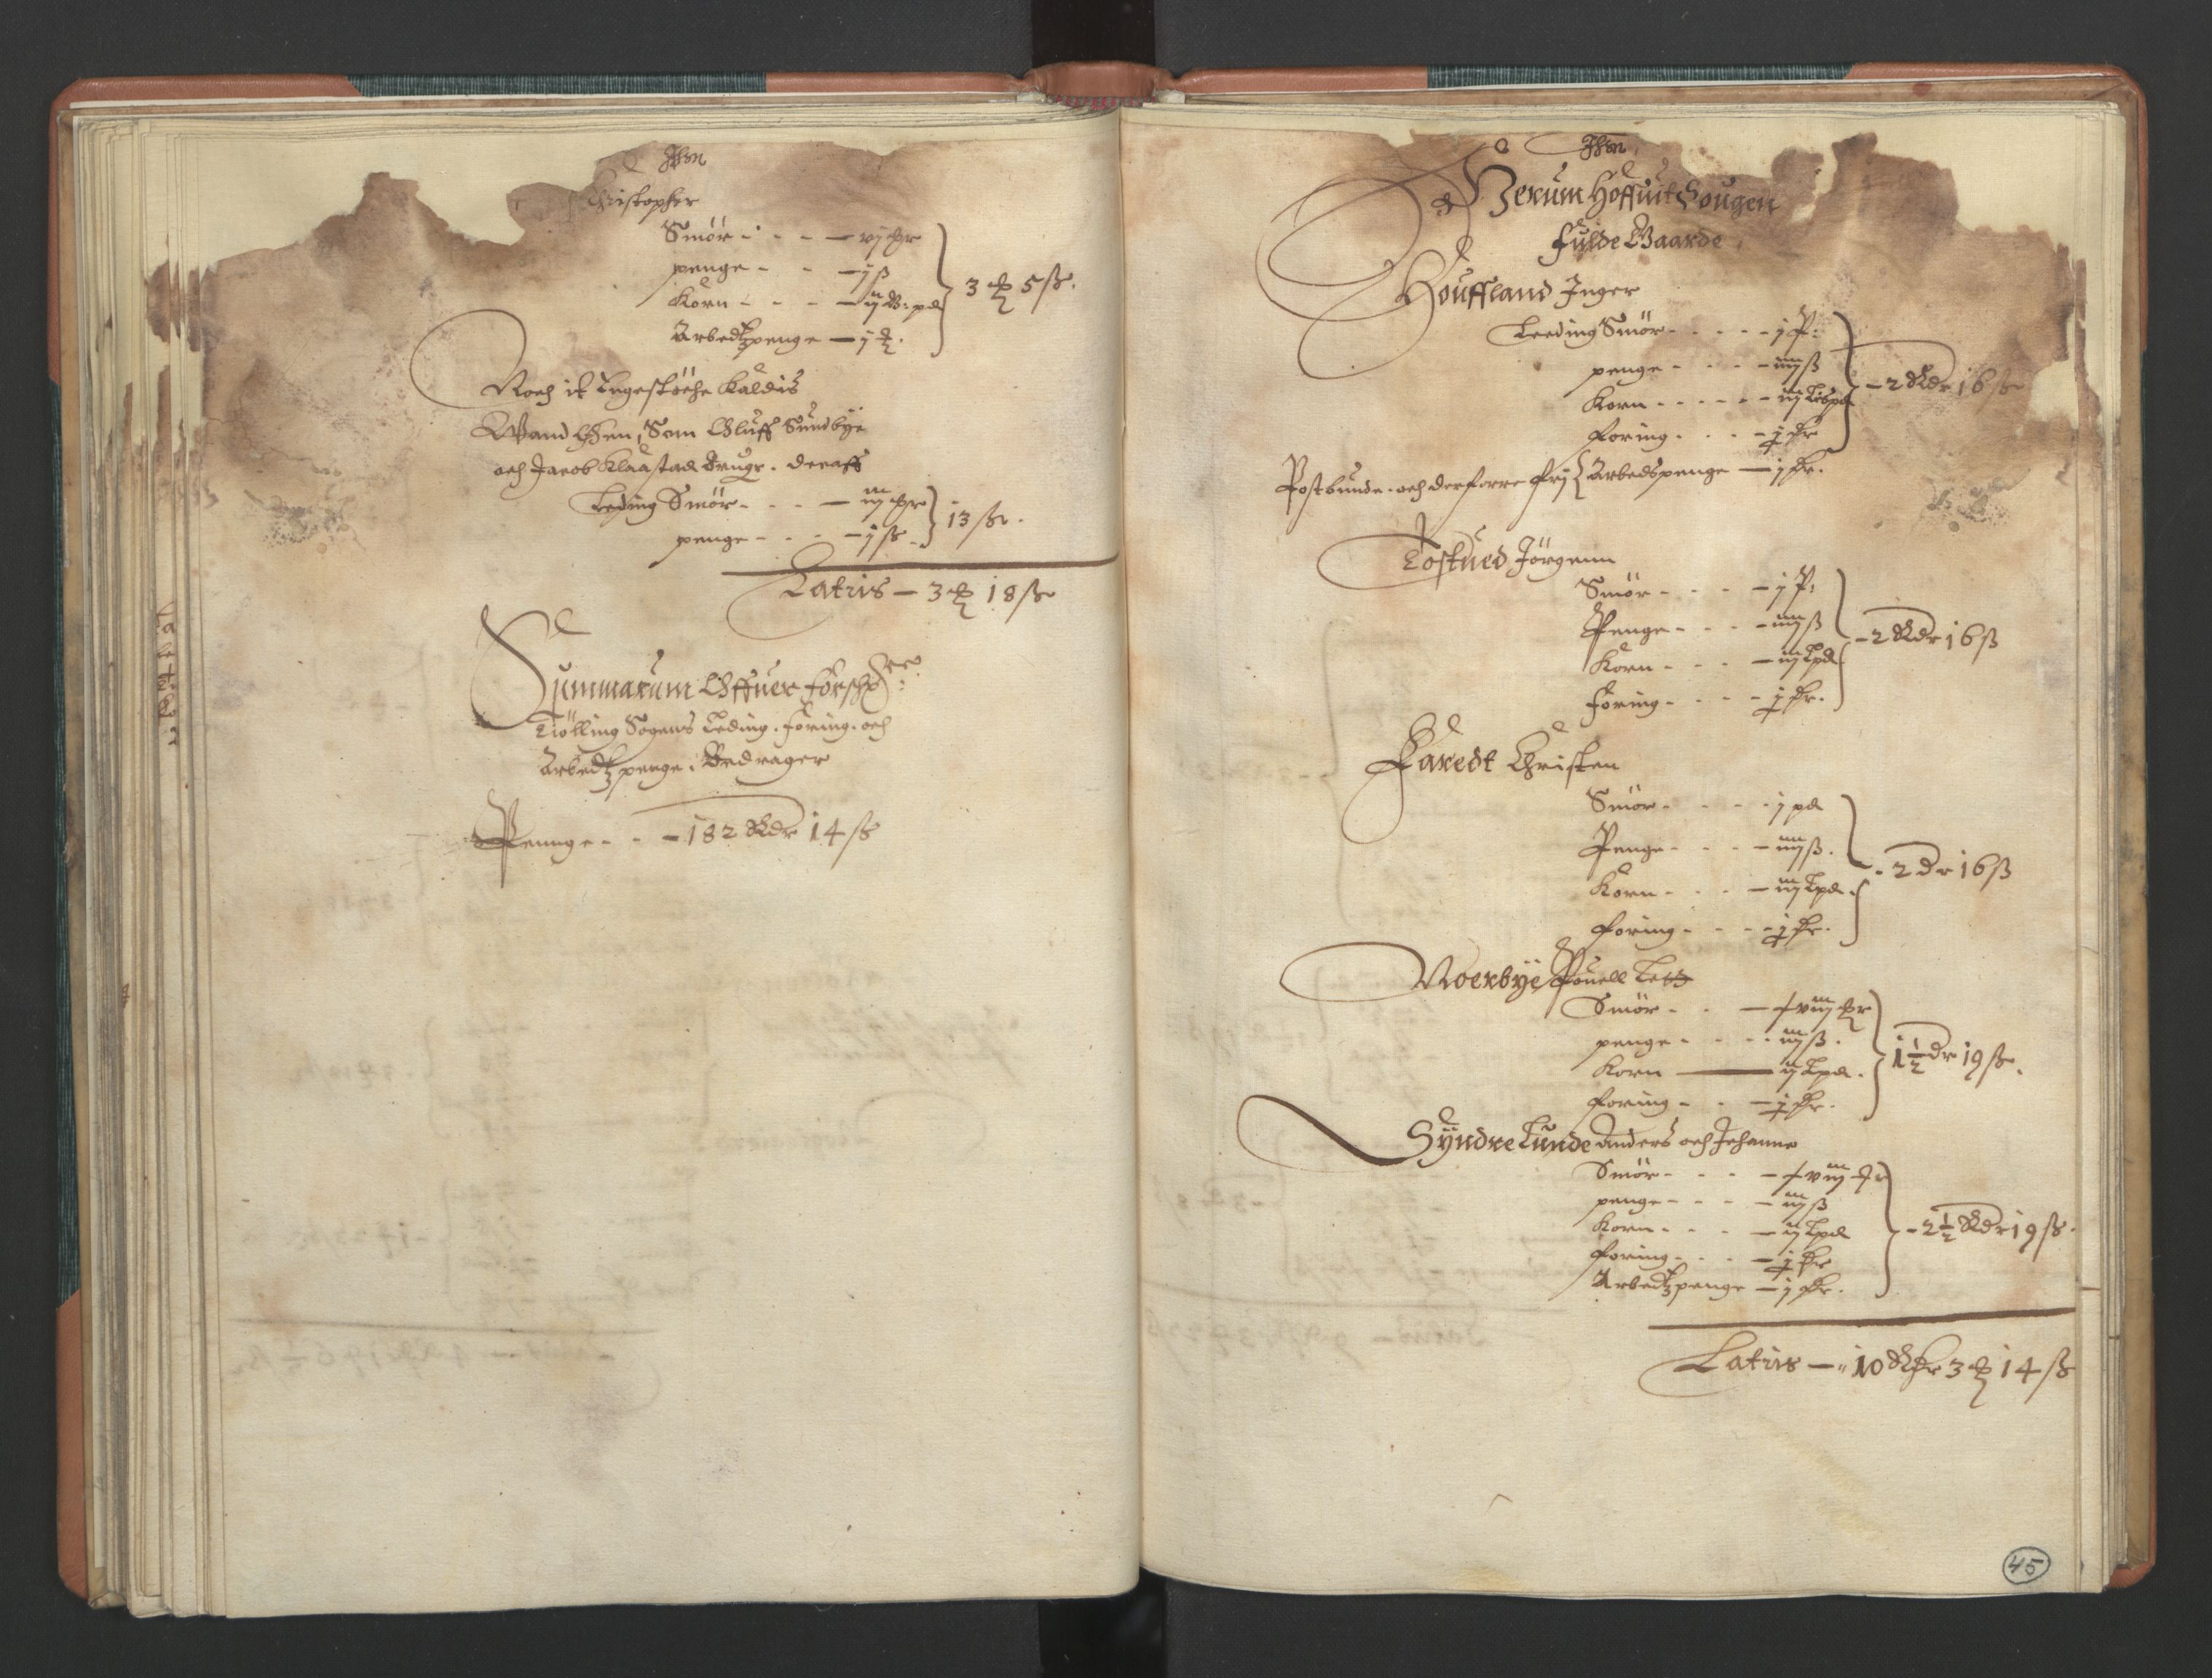 Jhm
Christopher
Smör - - - vj
penge - - - j ß
Korn - - - ij
Arbedtzpenge - j
3 5 ß.
Noch it Engesloche Kaldis
Som Oluff Sundbÿe
och Jacob Klaastad brugr. deraff
Leding Smör - - - iij
penge - - - j ß.
13 ß.
Latris - 3 18 ß
Summarum Offuer
Tiölling Sogens Leding. Foring. och
Arbedtzpenge. Bedrager
Pennge - - - 182 Rdr 14 ß
Jhm
Berum Hoffuit Sougen
Fulde Gaarde
Houffland Inger
Leeding Smör - - - - j P:
penge - - - - iiij ß
Korn - - - - - iij Lispd
Foring - - - - j dr
- 2 Rdr 16 ß
Postbunde. och derforre frj Arbedspenge - j dr.
Tostued Jörgenn
Smör - - - - j P:
Penge - - - - iiij ß
Korn - - - - iij Lpd
Foring - - - - j dr.
- 2 Rdr 16 ß
Faredt Christen
Smör - - - - j pd
Penge - - - - iiij ß.
Korn - - - - iij Lpd.
Foring - - - - j dr.
- 2 dr 16 ß
Noerbÿe Pouell
Smör - - -
penge - - - - iij ß.
Korn - ij Lpd.
Foring - - - j dr.
1 1/2 dr 19 ß.
Sÿndre Lunde Anders och Johanne
Smör - - - -
penge - - - - iij ß
Korn - - - - ij Lpd
Foring - - - - j dr
Arbedtzpenge - j dr.
- 2 1/2 Rdr 19 ß.
Latris - 10 Rdr 3 14 ß
45